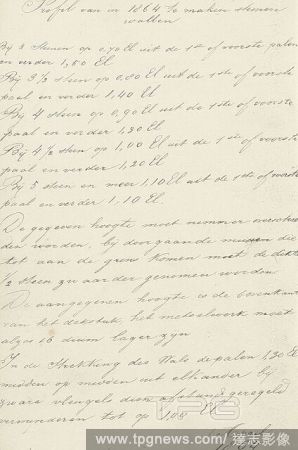 Profil van in 1864 te maken steenen
wallen
Bij 3 Steenen op 0,70 El uit de 1ste of voorste palen
en verder 1,50 El
Bij 3½ steen op 0,80 El uit de 1ste of voorste
paal en verder 1,40 El
Bij 4 steen op 0,90 El uit de 1ste of voorste
paal en verder 1,30 El
Bij 4½ steen op 1,00 El uit de 1ste of voorste
paal en verder 1,20 El
Bij 5 steen en meer 1,10 El uit de 1ste of voorste
paal en verder 1,10 El.
De gegeven hoogte moet nimmer overschre
den worden, bij doorgaande die
tot aan de grens komen moet de dekste
½ steen zwaarder genomen worden
De aangegeven hoogte is de bovenkant
van het dekstuk, het metselwerk moet
alzoo 16 duim lager zyn
In de strekking des Wals de palen 1,30 El
midden op midden uit elkander bij
zware vleugels dien afstand geregeld
verminderen tot op 1,08 El
www.tpgnews.com | 達志影像